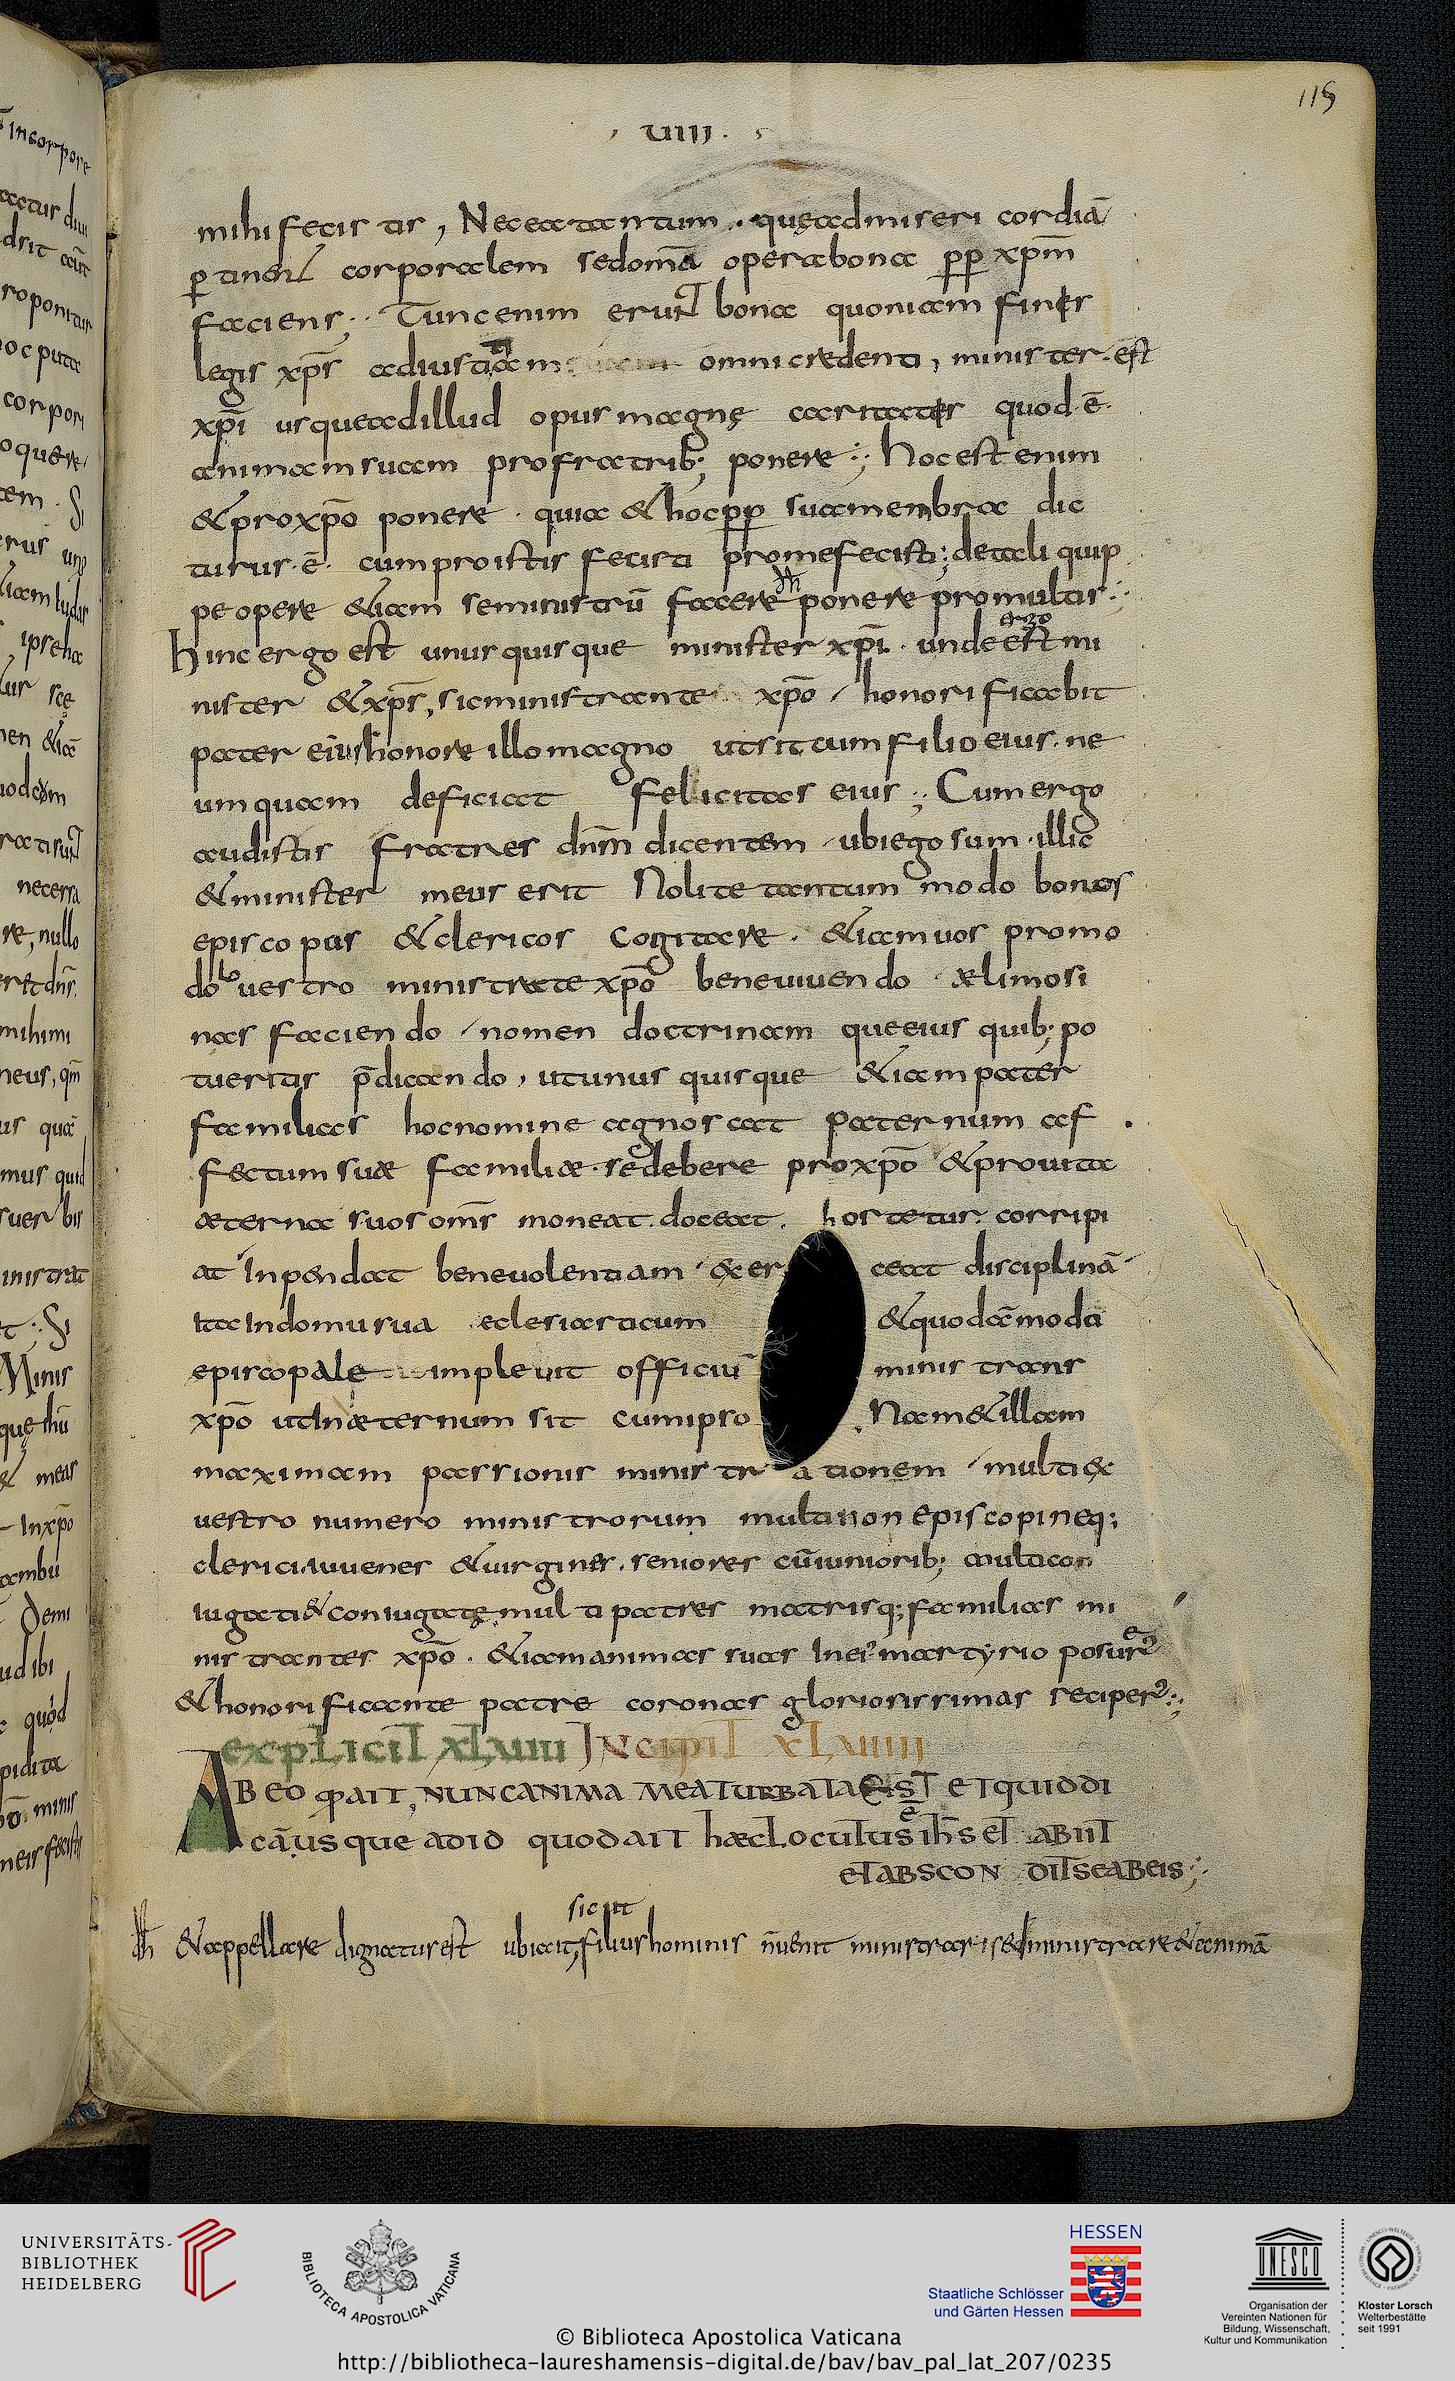 115
uıııı
mihi fecistis, Nec ea tantum. quę ad misericordiã
ꝑtinent corporalem sed omã opera bona ꝓꝓ xp̃m
faciens; Tunc enim erunt bona quoniam finis
legis xp̃s ad iustitiam omni credenti, minister. est
xp̃i usque ad illud opus magnę caritatis quod. ẽ.
animam suam pro fratrib; ponere; Hoc est enim
& pro xp̃o ponere. quia & hoc ꝓꝓ sua membra dic
turus. ẽ. cum pro istis fecisti pro me fecisti; de tali quip
pe opere &iam se ministrũ facere ponere pro multis;
Hinc ergo est unusquisque minister xp̃i. unde est mi
ergo
nister & xp̃s, sic ministrante xp̃o honorificabit
pater eius honore illo magno ut sit cum filio eius. ne
umquam deficiat felicitas eius; Cum ergo
audistis fratres dñm dicentem. ubi ego sum. illic
& minister meus erit Nolite tantum modo bonos
episcopus & clericos cogitare. &iam uos pro mo
do uestro ministrate xp̃o bene uiuendo ælimosi
nas faciendo, nomen doctrinam que eius quib; po
tueritis p̃dicando, ut unus quisque &iam pater
familias hoc nomine agnoscat paternum af
fectum suæ familiæ. se debere pro xp̃o & pro uita
æterna suos oms̃ moneat. doceat. hortetur. corripi
at Inpendat beneuolentiam &exer ceat disciplinã
Ita In domu sua eclesiasticum & quodãmodi
episcopale impleuit officiũ ministrans
xp̃o ut In æternum sit cum ipso. Nam & illam
maximam passionis ministrationem multi ex
uestro numero ministrorum multi non episcopi neq;
clerici. iuuenes & uirgines. seniores cũ iuniorib; multi con
iugati & coniugatę multi patres matrisq; familias mi
nistrantes xp̃o. &iam animas suas In eiꝰ martyrio posuerꝰ
& honorificante patre coronas gloriosissimas reciperꝰ;
explicit xLuiiii Incipit xLuiiii
AB EO qđ AIT, NUNC ANIMA MEA TURBATA EST ET QUID DI
CÃ, USQUE AD ID QUOD AIT HÆC LOCUTUS ẽ IHS ET ABIIT
ET ABSCONDIT SE AB EIS;
hh &appellare dignatur est ubi ait, filius hominis ñ uenit ministrari sed ministrare & animã
sicut
UNIVERSITÄTS-
BIBLIOTHEK
HEIDELBERG
BIBLIOTECA APOSTOLICA VATICANA
HESSEN
Staatliche Schlösser
und Gärten Hessen
UNESCO
Organisation der
Vereinten Nationen für
Bildung, Wissenschaft,
Kultur und Kommunikation
Kloster Lorsch
Welterbestätte
seit 1991
© Biblioteca Apostolica Vaticana
http://bibliotheca-laureshamensis-digital.de/bav/bav_pal_lat_207/0235